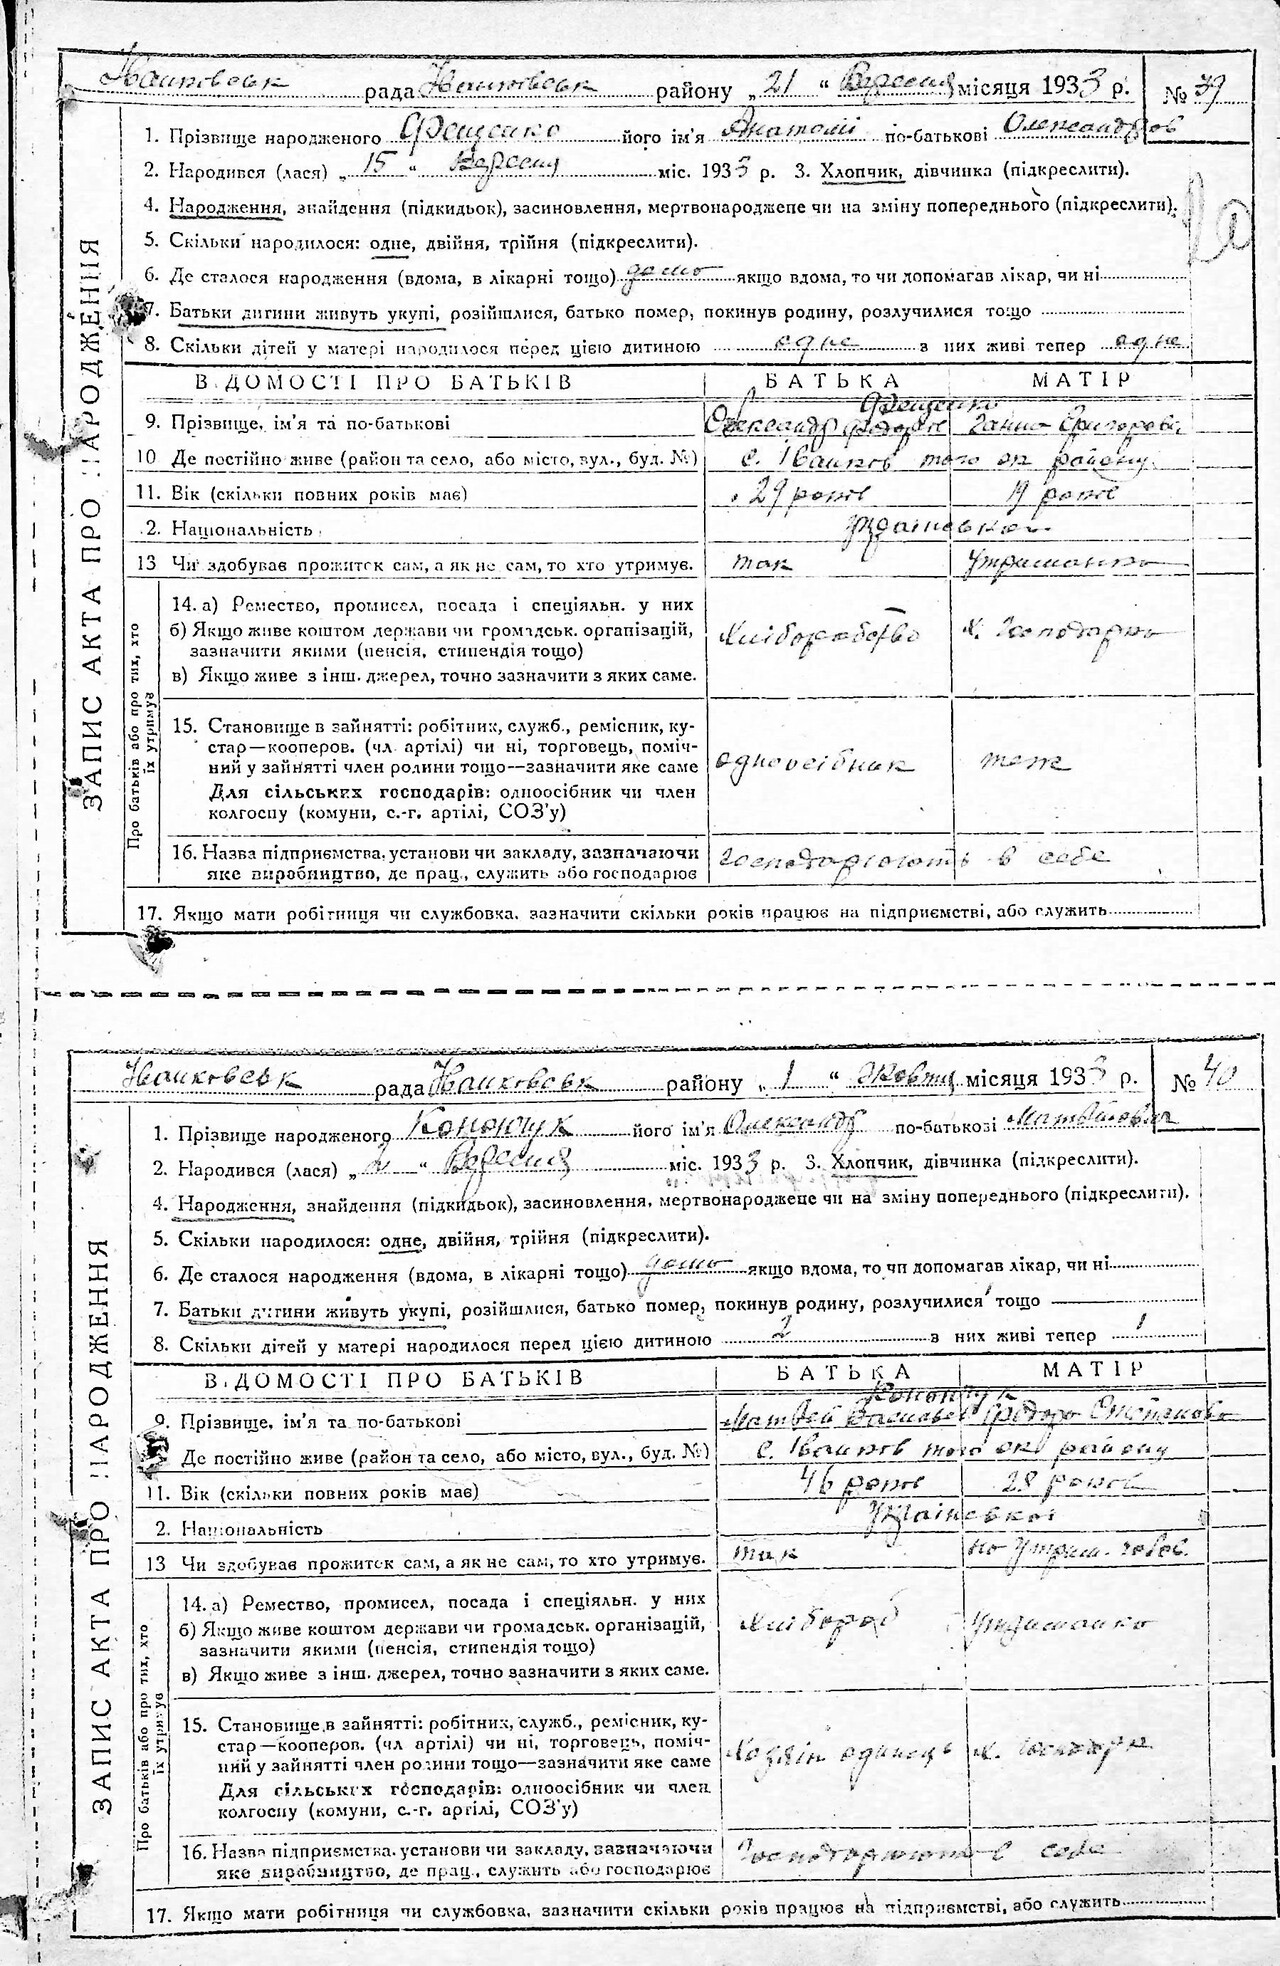 Іванковськ рада Іванковськ району „21“ Вересня місяця 1933 р. № 39
1. Прізвище народженого Фещенко його ім'я Анатолі по-батькові Олександров
2. Народився (лася) „15“ Вересня міс. 1933 р. 3. Хлопчик, дівчинка (підкреслити).
4. Народження, знайдення (підкидьок), засиновлення, мертвонароджене чи на зміну попереднього (підкреслити).
5. Скільки народилося: одне, двійня, трійня (підкреслити).
6. Де сталося народження (вдома, в лікарні тощо) дома якщо вдома, то чи допомагав лікар, чи ні
7. Батьки дитини живуть укупі, розійшлися, батько помер, покинув родину, розлучилися тощо
8. Скільки дітей у матері народилося перед цією дитиною одне з них живі тепер одне
ЗАПИС АКТА ПРО НАРОДЖЕННЯ
ВІДОМОСТІ ПРО БАТЬКІВ БАТЬКА МАТІР
Фещенко
9. Прізвище, ім'я та по-батькові Олександр Федоров Ганна Григорові
10 Де постійно живе (район та село, або місто, вул., буд. №) с. Іванков того ж району
11. Вік (скільки повних років має) 29 років 19 років
2. Національність Української
13 Чи здобував прожиток сам, а як не сам, то хто утримує. так Утриманка
Про батьків або про тих, хто їх утримує
14. а) Ремество, промисел, посада і спеціяльн. у них
б) Якщо живе коштом держави чи громадськ. організацій, Хліборобство х. Господарка
зазначити якими (пенсія, стипендія тощо)
в) Якщо живе з інш. джерел, точно зазначити з яких саме.
15. Становище в зайнятті: робітник, служб., ремісник, ку-
стар—кооперов. (чл. артілі) чи ні, торговець, поміч-
ний у зайнятті член родини тощо—зазначити яке саме одноосібник теж
Для сільських господарів: одноосібник чи член
колгоспу (комуни, с.-г. артілі, СОЗ'у)
16. Назва підприємства, установи чи закладу, зазначаючи Господарюють в себе
яке виробництво, де прац., служить або господарює
17. Якщо мати робітниця чи службовка, зазначити скільки років працює на підприємстві, або служить
Іванковськ рада Іванковськ району „1“ Жовтня місяця 1933 р. № 40
1. Прізвище народженого Конончук його ім'я Олександр по-батькові Матвійович
2. Народився (лася) „2“ Вересня міс. 1933 р. 3. Хлопчик, дівчинка (підкреслити).
4. Народження, знайдення (підкидьок), засиновлення, мертвонароджене чи на зміну попереднього (підкреслити).
5. Скільки народилося: одне, двійня, трійня (підкреслити).
6. Де сталося народження (вдома, в лікарні тощо) дома якщо вдома, то чи допомагав лікар, чи ні
7. Батьки дитини живуть укупі, розійшлися, батько помер, покинув родину, розлучилися тощо
8. Скільки дітей у матері народилося перед цією дитиною 2 з них живі тепер 1
ЗАПИС АКТА ПРО НАРОДЖЕННЯ
ВІДОМОСТІ ПРО БАТЬКІВ БАТЬКА МАТІР
Конончук
9. Прізвище, ім'я та по-батькові Матвей Васильев Федора Степанова
Де постійно живе (район та село, або місто, вул., буд. №) с. Іванков того ж району
11. Вік (скільки повних років має) 46 років 28 років
2. Національність Української
13 Чи здобував прожиток сам, а як не сам, то хто утримує. так на утрим. чолов.
Про батьків або про тих, хто їх утримує
14. а) Ремество, промисел, посада і спеціяльн. у них
б) Якщо живе коштом держави чи громадськ. організацій, Хлібороб утриманка
зазначити якими (пенсія, стипендія тощо)
в) Якщо живе з інш. джерел, точно зазначити з яких саме.
15. Становище в зайнятті: робітник, служб., ремісник, ку-
стар—кооперов. (чл артілі) чи ні, торговець, поміч- Хозяін одинець х. Господарк
ний у зайнятті член родини тощо—зазначити яке саме
Для сільських господарів: одноосібник чи член
колгоспу (комуни, с.-г. артілі, СОЗ'у)
16. Назва підприємства, установи чи закладу, зазначаючи Господарюють в себе
яке виробництво, де прац., служить або господарює
17. Якщо мати робітниця чи службовка, зазначити скільки років працює на підприємстві, або служить